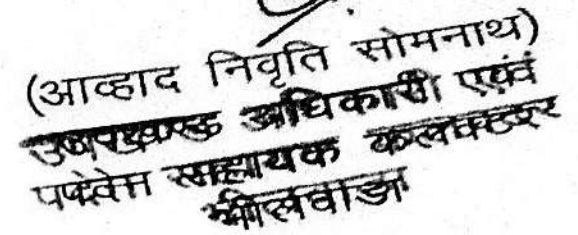 (आव्हाद निवृति सोमनाथ)
उपखण्ड अधिकारी एवं
सहायक कलक्टर
भीलवाडा